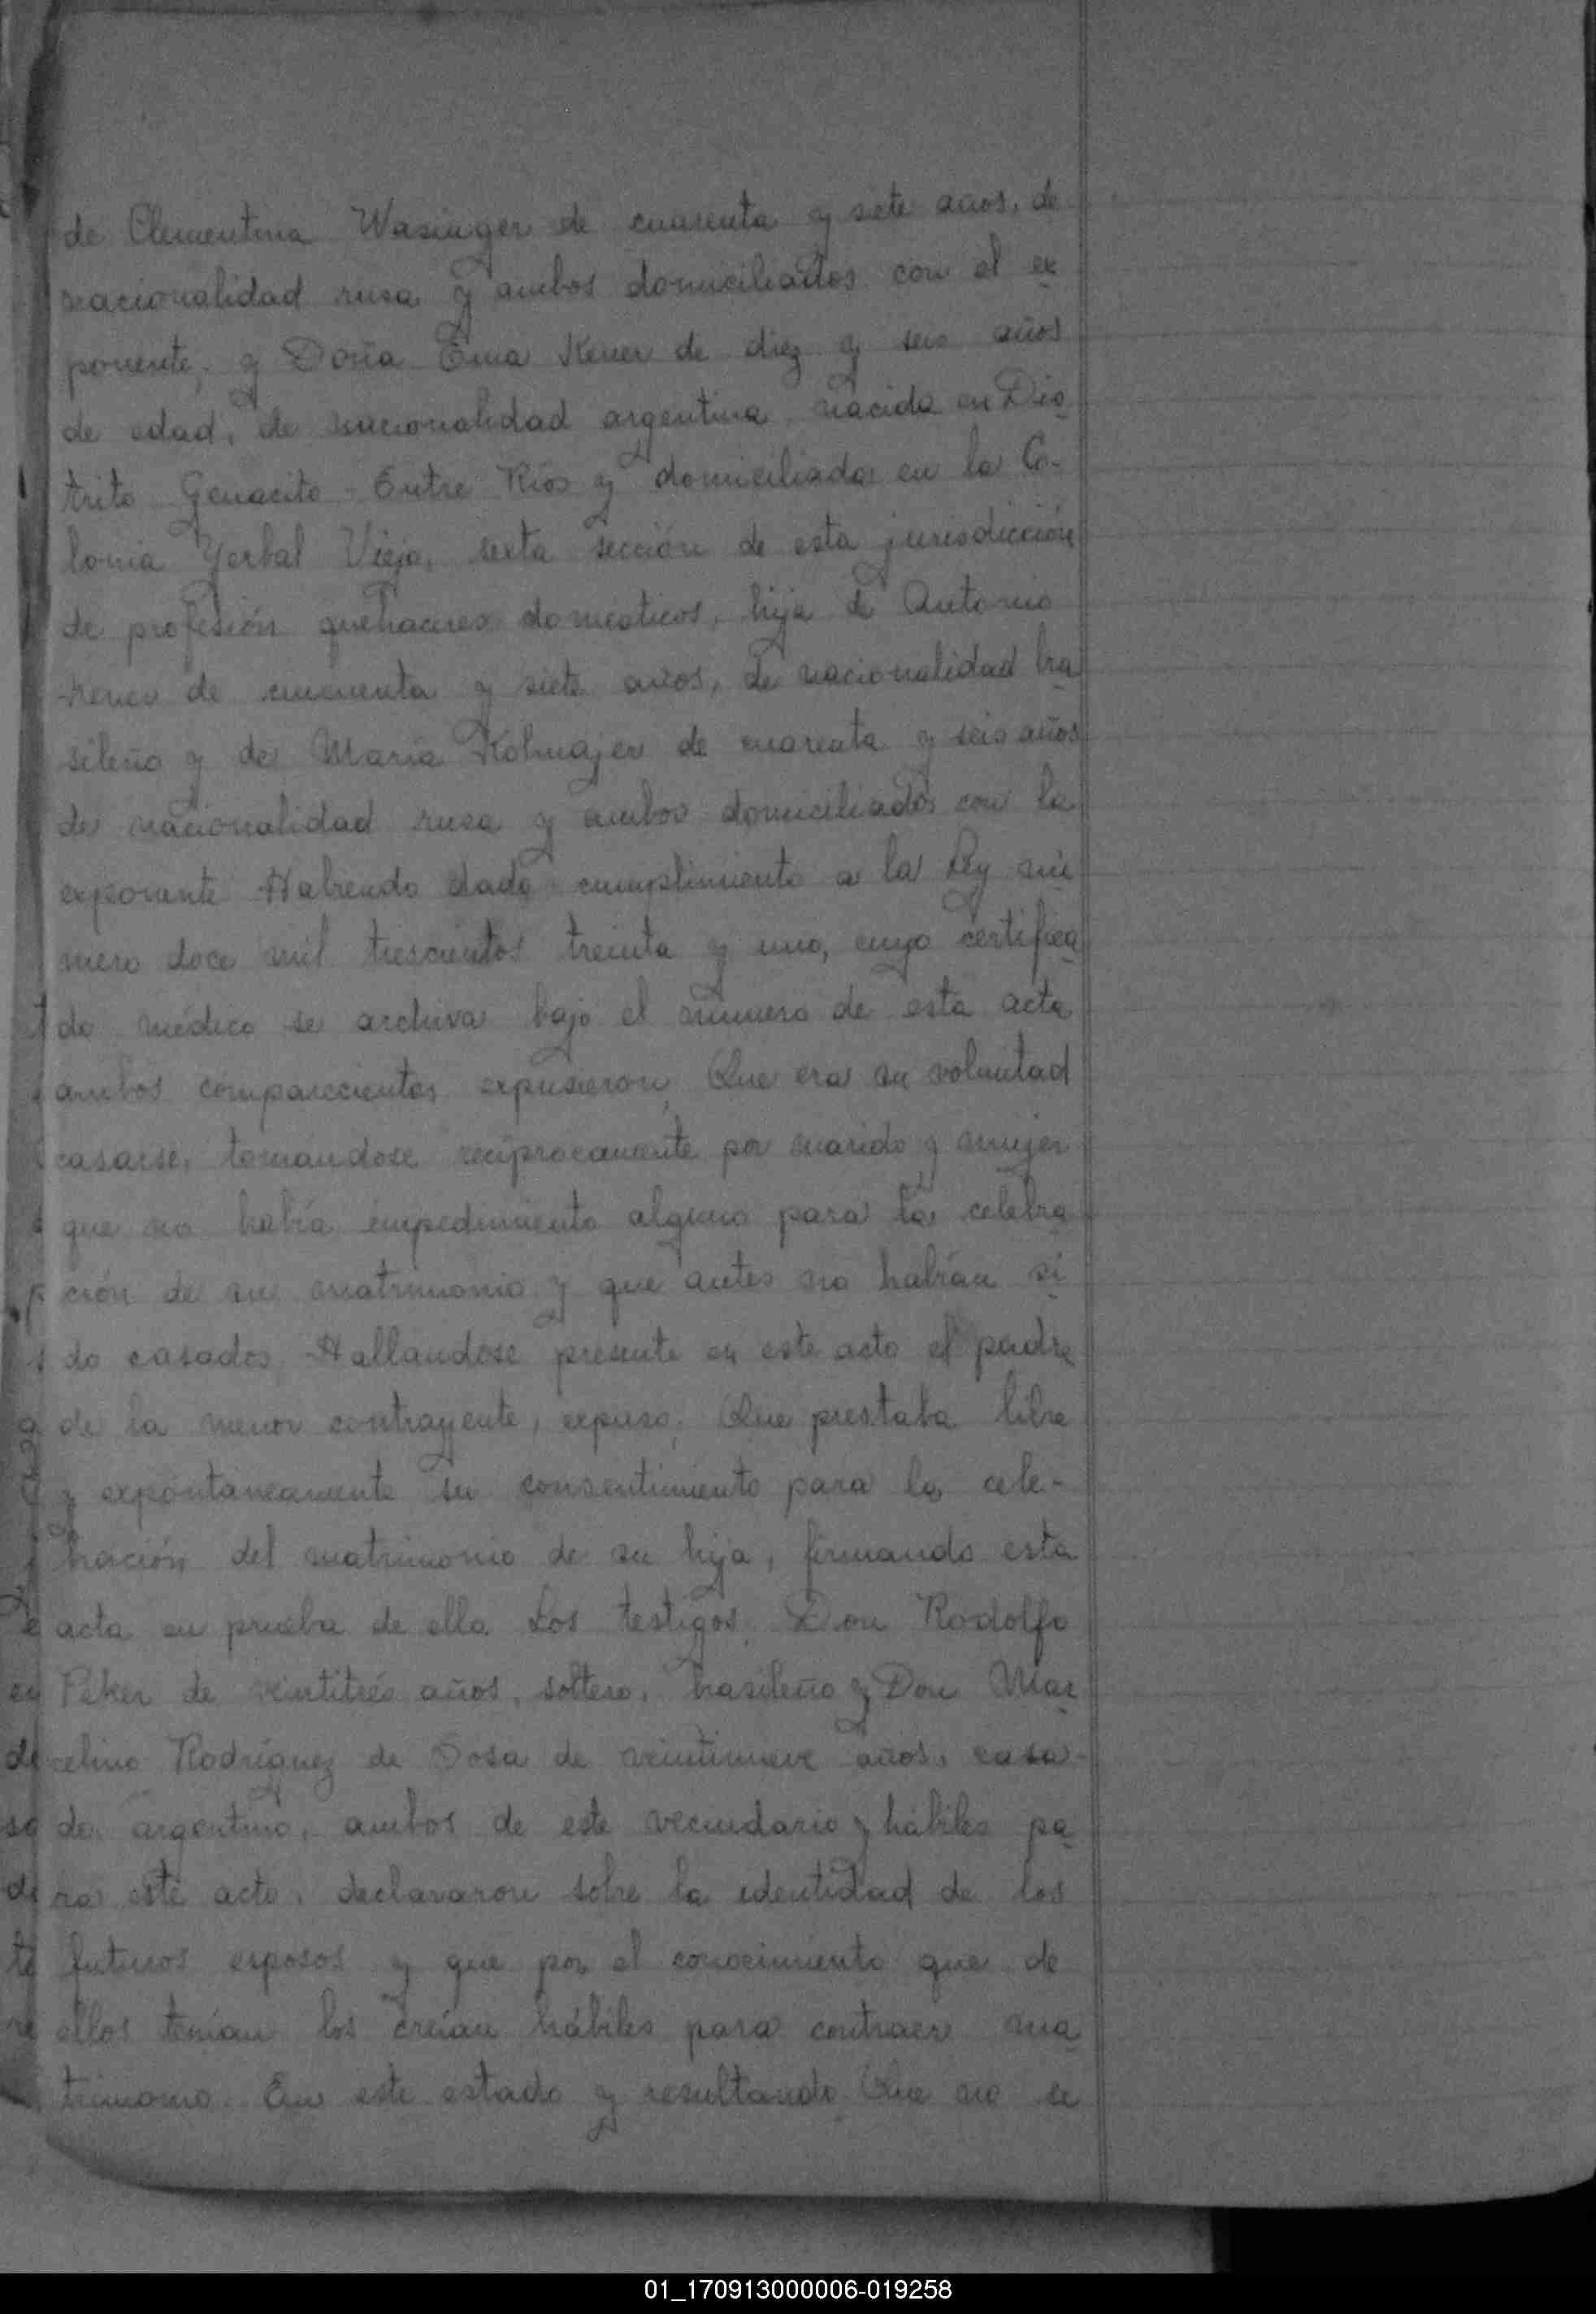 de Clementina Wasinger de cuarenta y siete años, de
nacionalidad rusa y ambos domiciliados con el ex
ponente, y Doña Ema Kener de diez y seis años
de edad, de nacionalidad argentina, nacida en Dis
trito Genacito - Entre Ríos y domiciliada en la Co-
lonia Yerbal Viejo, sexta sección de esta jurisdicción
de profesión quehaceres domésticos, hija de Antonio
Kener de cincuenta y siete años, de nacionalidad bra
sileño y de María Kolmajer de cuarenta y seis años
de nacionalidad rusa y ambos domiciliados con la
exponente. Habiendo dado cumplimiento a la Ley nú
mero doce mil trescientos treinta y uno, cuyo certifica
do médico se archiva bajo el número de esta acta
ambos comparecientes expusieron; Que era su voluntad
casarse, tomandose reciprocamente por marido y mujer
que no había impedimento alguno para la celebra
ción de su matrimonio y que antes no habían si
do casados. Hallandose presente en este acto el padre
de la menor contrayente, expuso; Que prestaba libre
y expontaneamente su consentimiento para la cele-
bración del matrimonio de su hija, firmando esta
acta en prueba de ello. Los testigos; Don Rodolfo
Peker de veintitrés años, soltero, brasileño y Don Mar
celino Rodríguez de Sosa de veintinueve años, casa-
do, argentino, ambos de este vecindario y hábiles pa
ra este acto, declararon sobre la identidad de los
futuros esposos y que por el conocimiento que de
ellos tenían los creían hábiles para contraer ma
trimonio. En este estado y resultando Que no se
01_170913000006-019258